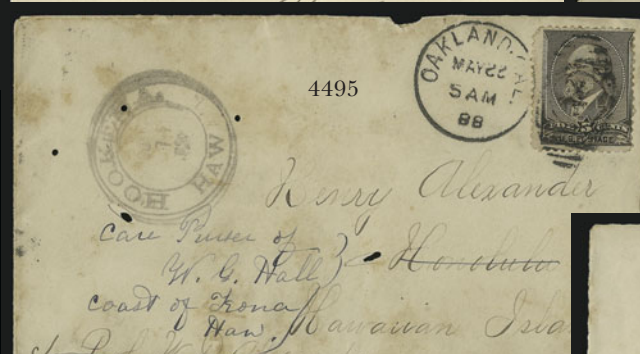 OAKLAND, CAL.
MAY 22
5 AM
88
4495
HOOKENA
HAW
Henry Alexander
Care Purser of
W. G. Hall
Honolulu
coast of Kona
Haw.
Hawaiian Isla